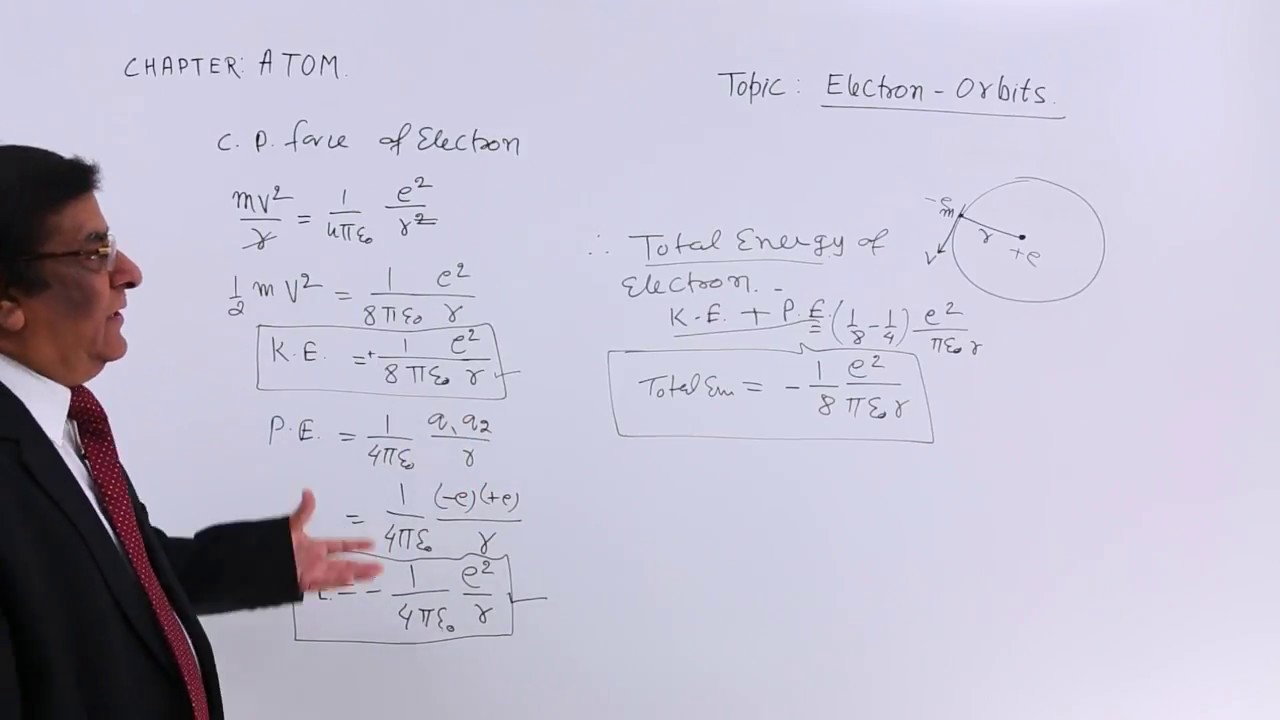 CHAPTER: ATOM.
Topic: Electron-Orbits.
C. P. force of Electron
mv²/r = 1/4πε₀ e²/r²
1/2 mv² = 1/8πε₀ e²/r
K.E. = + 1/8πε₀ e²/r
P.E. = 1/4πε₀ q₁q₂/r
= 1/4πε₀ (-e)(+e)/r
= - 1/4πε₀ e²/r
∴ Total Energy of
Electron.-
K.E. + P.E. = (1/8 - 1/4) e²/πε₀r
Total En = - 1/8 e²/πε₀r
-e
m
r
v
+e